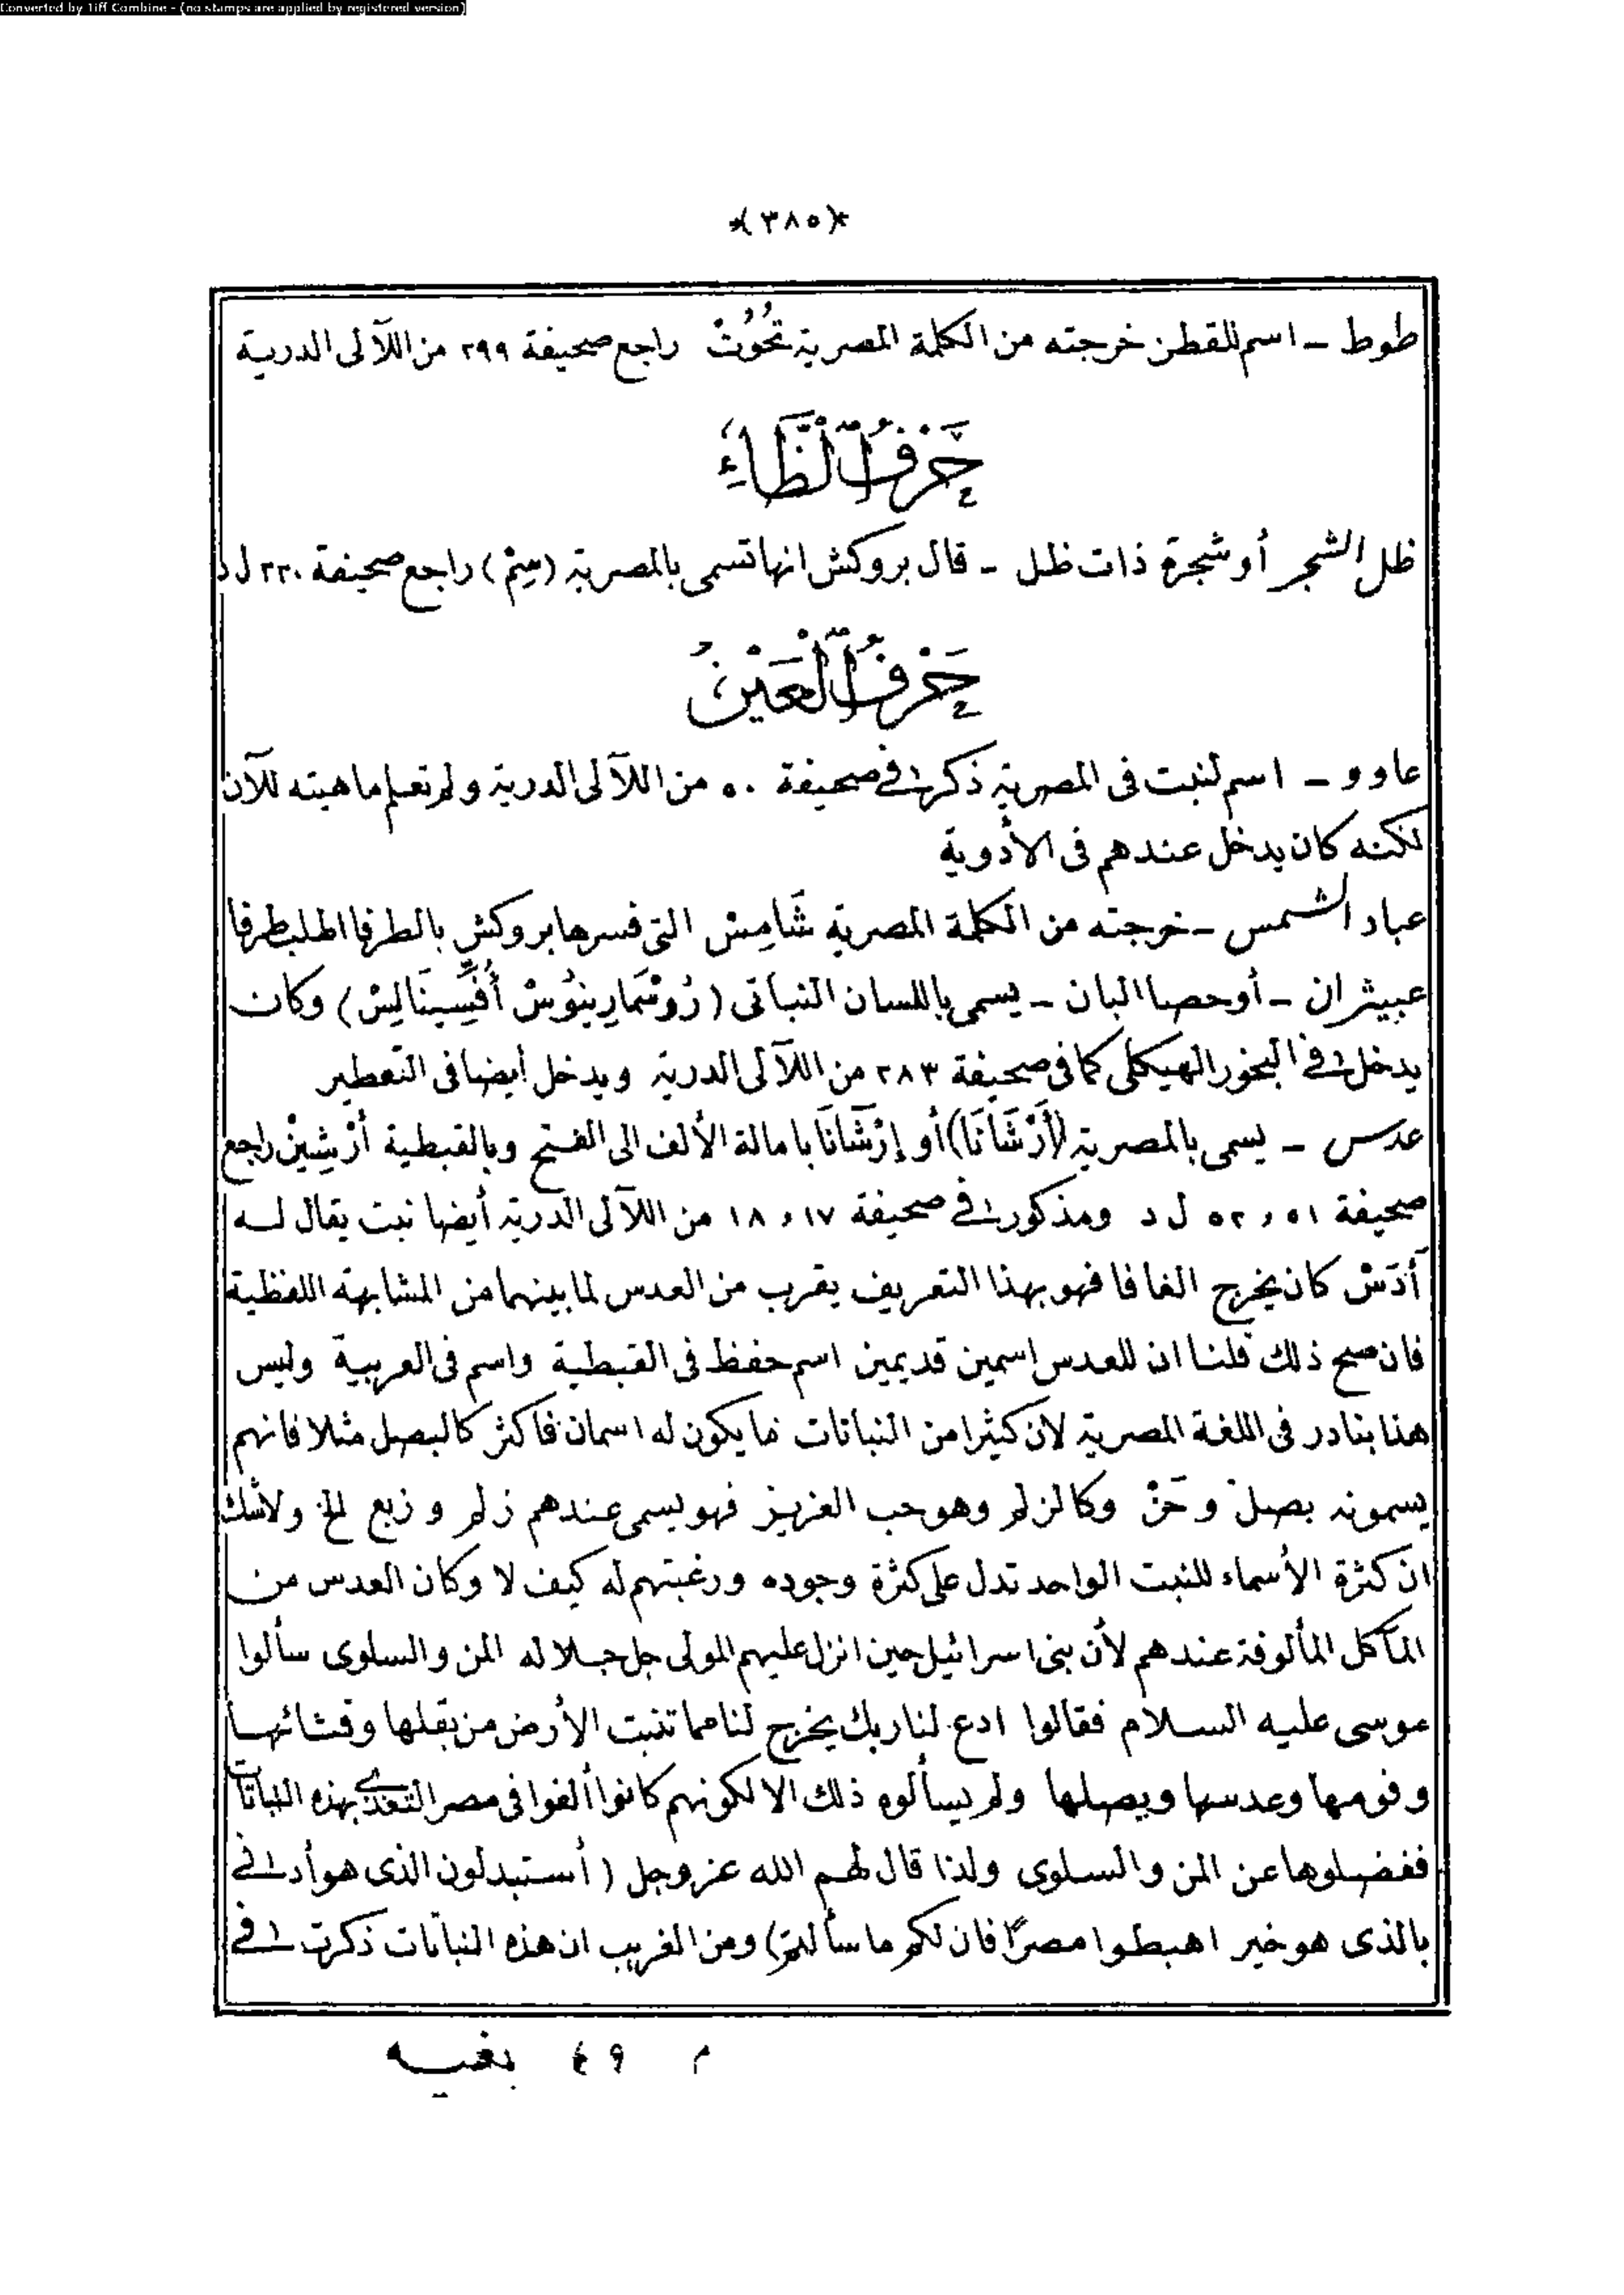 Converted by Tiff Combine - (no stamps are applied by registered version)
*(٣٨٥)*
طوط ــ اسم للقطن خرجته من الكلمة المصرية تحُوُتْ راجع صحيفة ٢٩٩ من اللآلى الدرية
حَرْفُ الظَّاءِ
ظل الشجر أو شجرة ذات ظل ــ قال بروكش انها تسمى بالمصرية (سِمْ) راجع صحيفة ٢٢٠ ل د
حَرْفُ الْعَيْنِ
عاوو ــ اسم لنبت فى المصرية ذكر فى صحيفة ٥٠ من اللآلى الدرية ولم تعلم ماهيته للآن
لكنه كان يدخل عندهم فى الأدوية
عباد الشمس ــ خرجته من الكلمة المصرية شَامِسْ التى فسرها بروكش بالطرفا
عبيثران ــ أو حصا البان ــ يسمى باللسان النباتى (رُوسْمَارِينُوسْ أُفِّسِينَالِيسْ) وكان
يدخل فى البخور الهيكلى كما فى صحيفة ٢٨٣ من اللآلى الدرية ويدخل أيضا فى التعطير
عدس ــ يسمى بالمصرية (أَرْشَانَا) أو إرْشَانَا بامالة الألف الى الفتح وبالقبطية أرْشِينْ راجع
صحيفة ٥١ و ٥٢ ل د ومذكور فى صحيفة ١٧ و ١٨ من اللآلى الدرية أيضا نبت يقال له
أَدَسْ كان يخرج الفافا فهو بهذا التعريف يقرب من العدس لما بينهما من المشابهة اللفظية
فان صح ذلك قلنا ان للعدس اسمين قديمين اسم حفظ فى القبطية واسم فى العربية وليس
هذا بنادر فى اللغة المصرية لان كثيرا من النباتات ما يكون له اسمان فاكثر كالبصل مثلا فانهم
يسمونه بصل و حَنْ وكالزلم وهو حب العزيز فهو يسمى عندهم زلم و زبع الخ ولا شك
ان كثرة الأسماء للنبت الواحد تدل على كثرة وجوده ورغبتهم له كيف لا وكان العدس من
المآكل المألوفة عندهم لأن بنى اسرائيل حين انزل عليهم المولى جل جلاله المن والسلوى سألوا
موسى عليه السلام فقالوا ادع لنا ربك يخرج لنا مما تنبت الأرض من بقلها وقثائها
وفومها وعدسها وبصلها ولم يسألوه ذلك الا لكونهم كانوا ألفوا فى مصر التغذى بهذه النباتات
ففضلوها عن المن والسلوى ولذا قال لهم الله عز وجل (أستبدلون الذى هو أدنى
بالذى هو خير اهبطوا مصرًا فان لكم ما سألتم) ومن الغريب ان هذه النباتات ذكرت فى
م ٤٩ بغيه